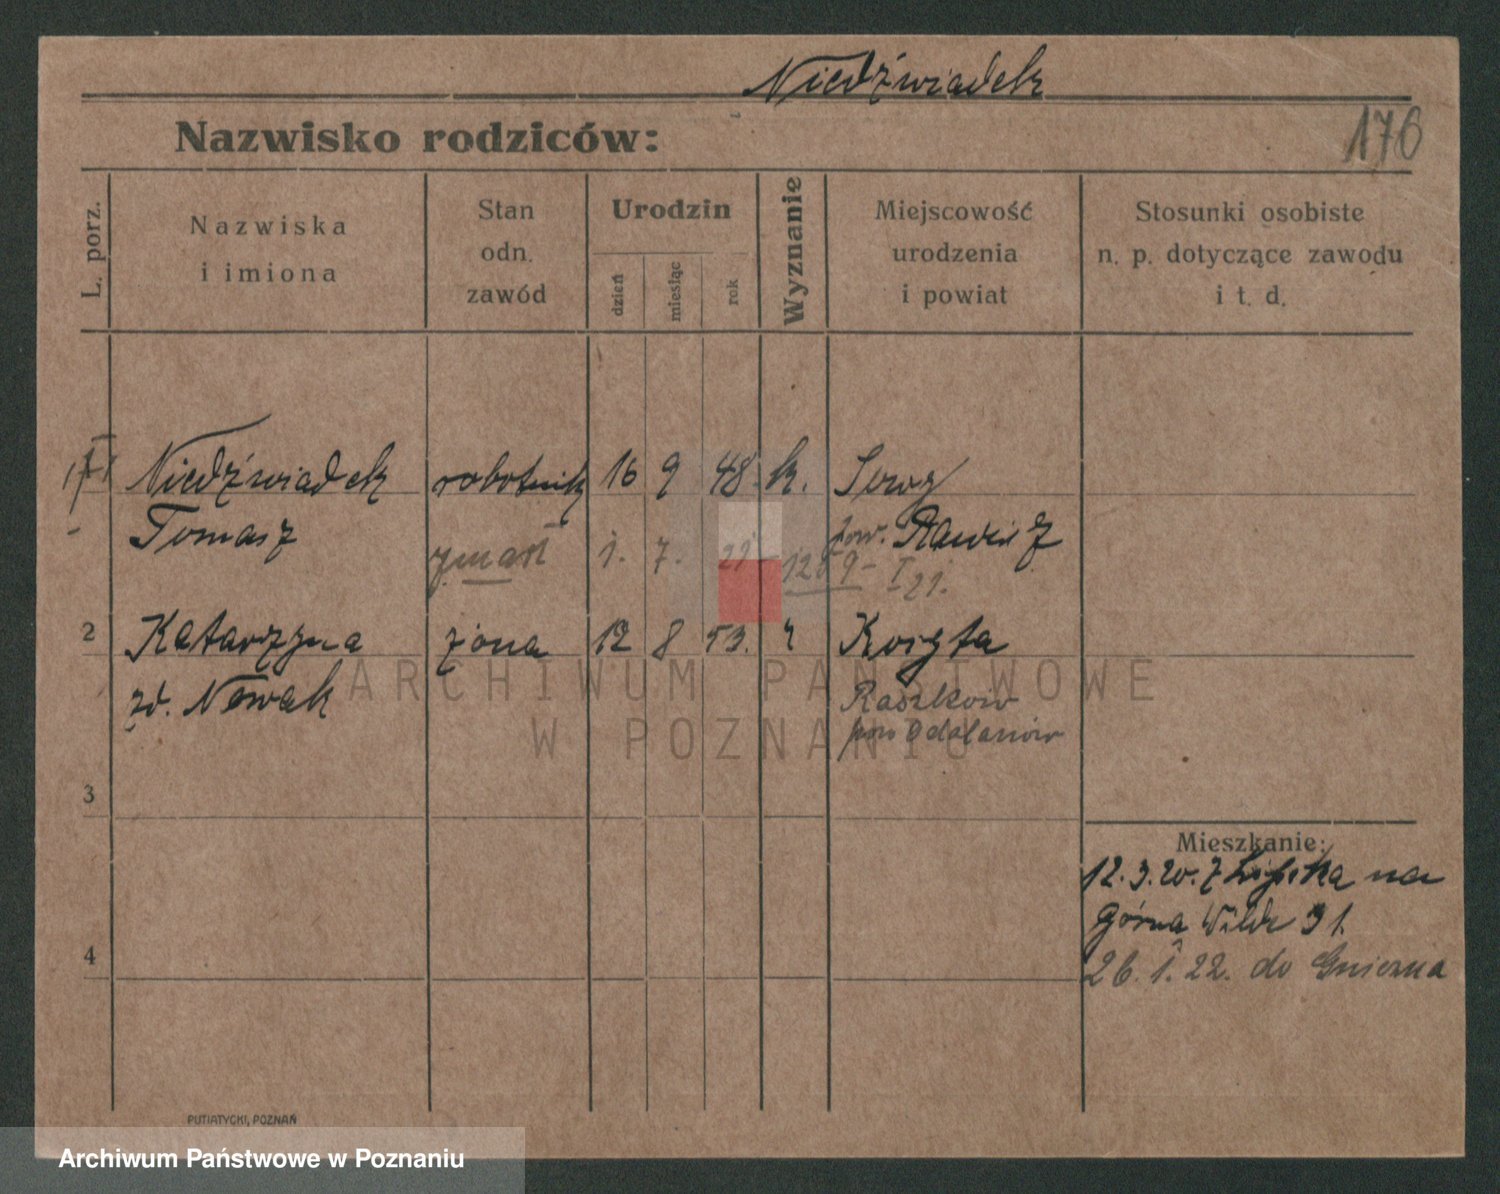 Niedźwiadek
Nazwisko rodziców:
176
L. porz.
Nazwiska
i imiona
Stan
odn.
zawód
Urodzin
dzień
miesiąc
rok
Wyznanie
Miejscowość
urodzenia
i powiat
Stosunki osobiste
n. p. dotyczące zawodu
i t. d.
Niedźwiadek robotnik 16 9 48. k. Sowy
Tomasz pow. Rawicz
zmarł 1. 7. 21
2 Katarzyna żona 12 8 53. Koryta
zd. Nowak Raszków
pow Odolanów
3
Mieszkanie:
12.3.20. z na
Górna Wilda 31.
4
26.1.22. do Gniezna
ARCHIWUM PAŃSTWOWE
W POZNANIU
PUTIATYCKI, POZNAŃ
Archiwum Państwowe w Poznaniu